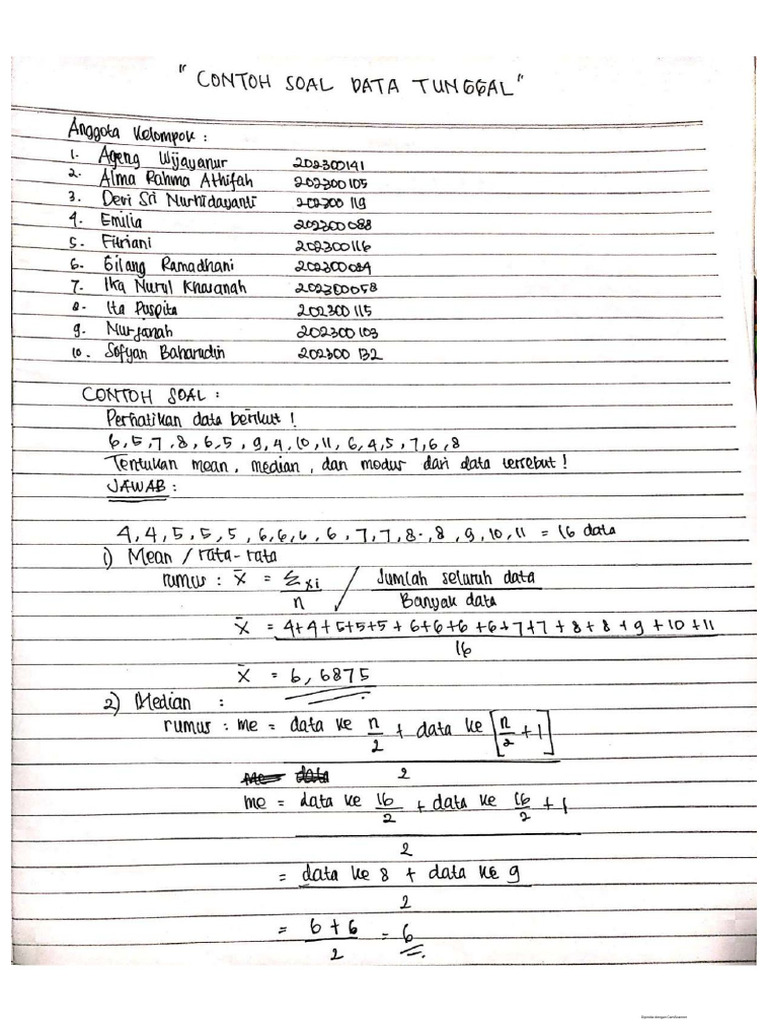 "CONTOH SOAL DATA TUNGGAL"
Anggota Kelompok :
1. Ageng Wijayanur 202300141
2. Alma Rahma Athifah 202300105
3. Devi Sri Nurhidayanti 202300119
4. Emilia 202300088
5. Fitriani 202300116
6. Gilang Ramadhani 202300084
7. Ika Nurul Khasanah 202300058
8. Ita Puspita 202300115
9. Nurjanah 202300103
10. Sofyan Baharudin 202300132
CONTOH SOAL :
Perhatikan data berikut !
6,5,7,8,6,5,9,4,10,11,6,4,5,7,6,8
Tentukan mean, median, dan modus dari data tersebut !
JAWAB :
4,4,5,5,5,6,6,6,6,7,7,8,8,9,10,11 = 16 data
1) Mean / rata-rata
rumus : x̄ = Σxi / Jumlah seluruh data
n Banyak data
x̄ = 4+4+5+5+5+6+6+6+6+7+7+8+8+9+10+11
16
x̄ = 6,6875
2) Median :
rumus : me = data ke n/2 + data ke [n/2 + 1]
2
me = data ke 16/2 + data ke 16/2 + 1
2
= data ke 8 + data ke 9
2
= 6 + 6 = 6
2